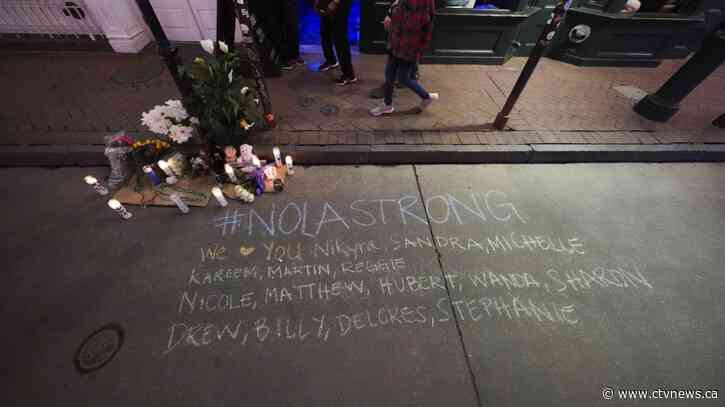 #NOLASTRONG
We ❤ YOU Nikyra, SANDRA, MICHELLE
KAREEM, MARTIN, REGGIE
NICOLE, MATTHEW, HUBERT, WANDA, SHARON
DREW, BILLY, DELORES, STEPHANIE
© www.ctvnews.ca